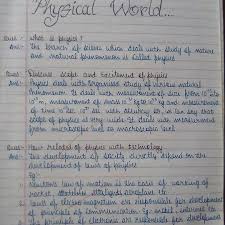 Physical World...
Ques- what is physics?
Ans- The branch of science which deals with study of nature
and natural phenomenon is called physics
Ques- Discuss scope and Excitement of physics
Ans- Physics deals with Organised study of various natural
phenomenon. It deals with measurement of size from
measurement of mass kg to kg and measurement
of time sec to sec. with we can say that
scope of physics is very wide. It deals with measurement
from microscopic level to macroscopic level
Ques- How related of physics with technology
Ans- The development of society directly depend on the
development of laws of physics
Eg:
1) Newton's law of motion is the basis of working of
rocket, aeroplane etc
2) laws of electro magnetism are responsible for development
of principle of communication Eg. mobile, internet etc
3) The principle of electronic are responsible for development